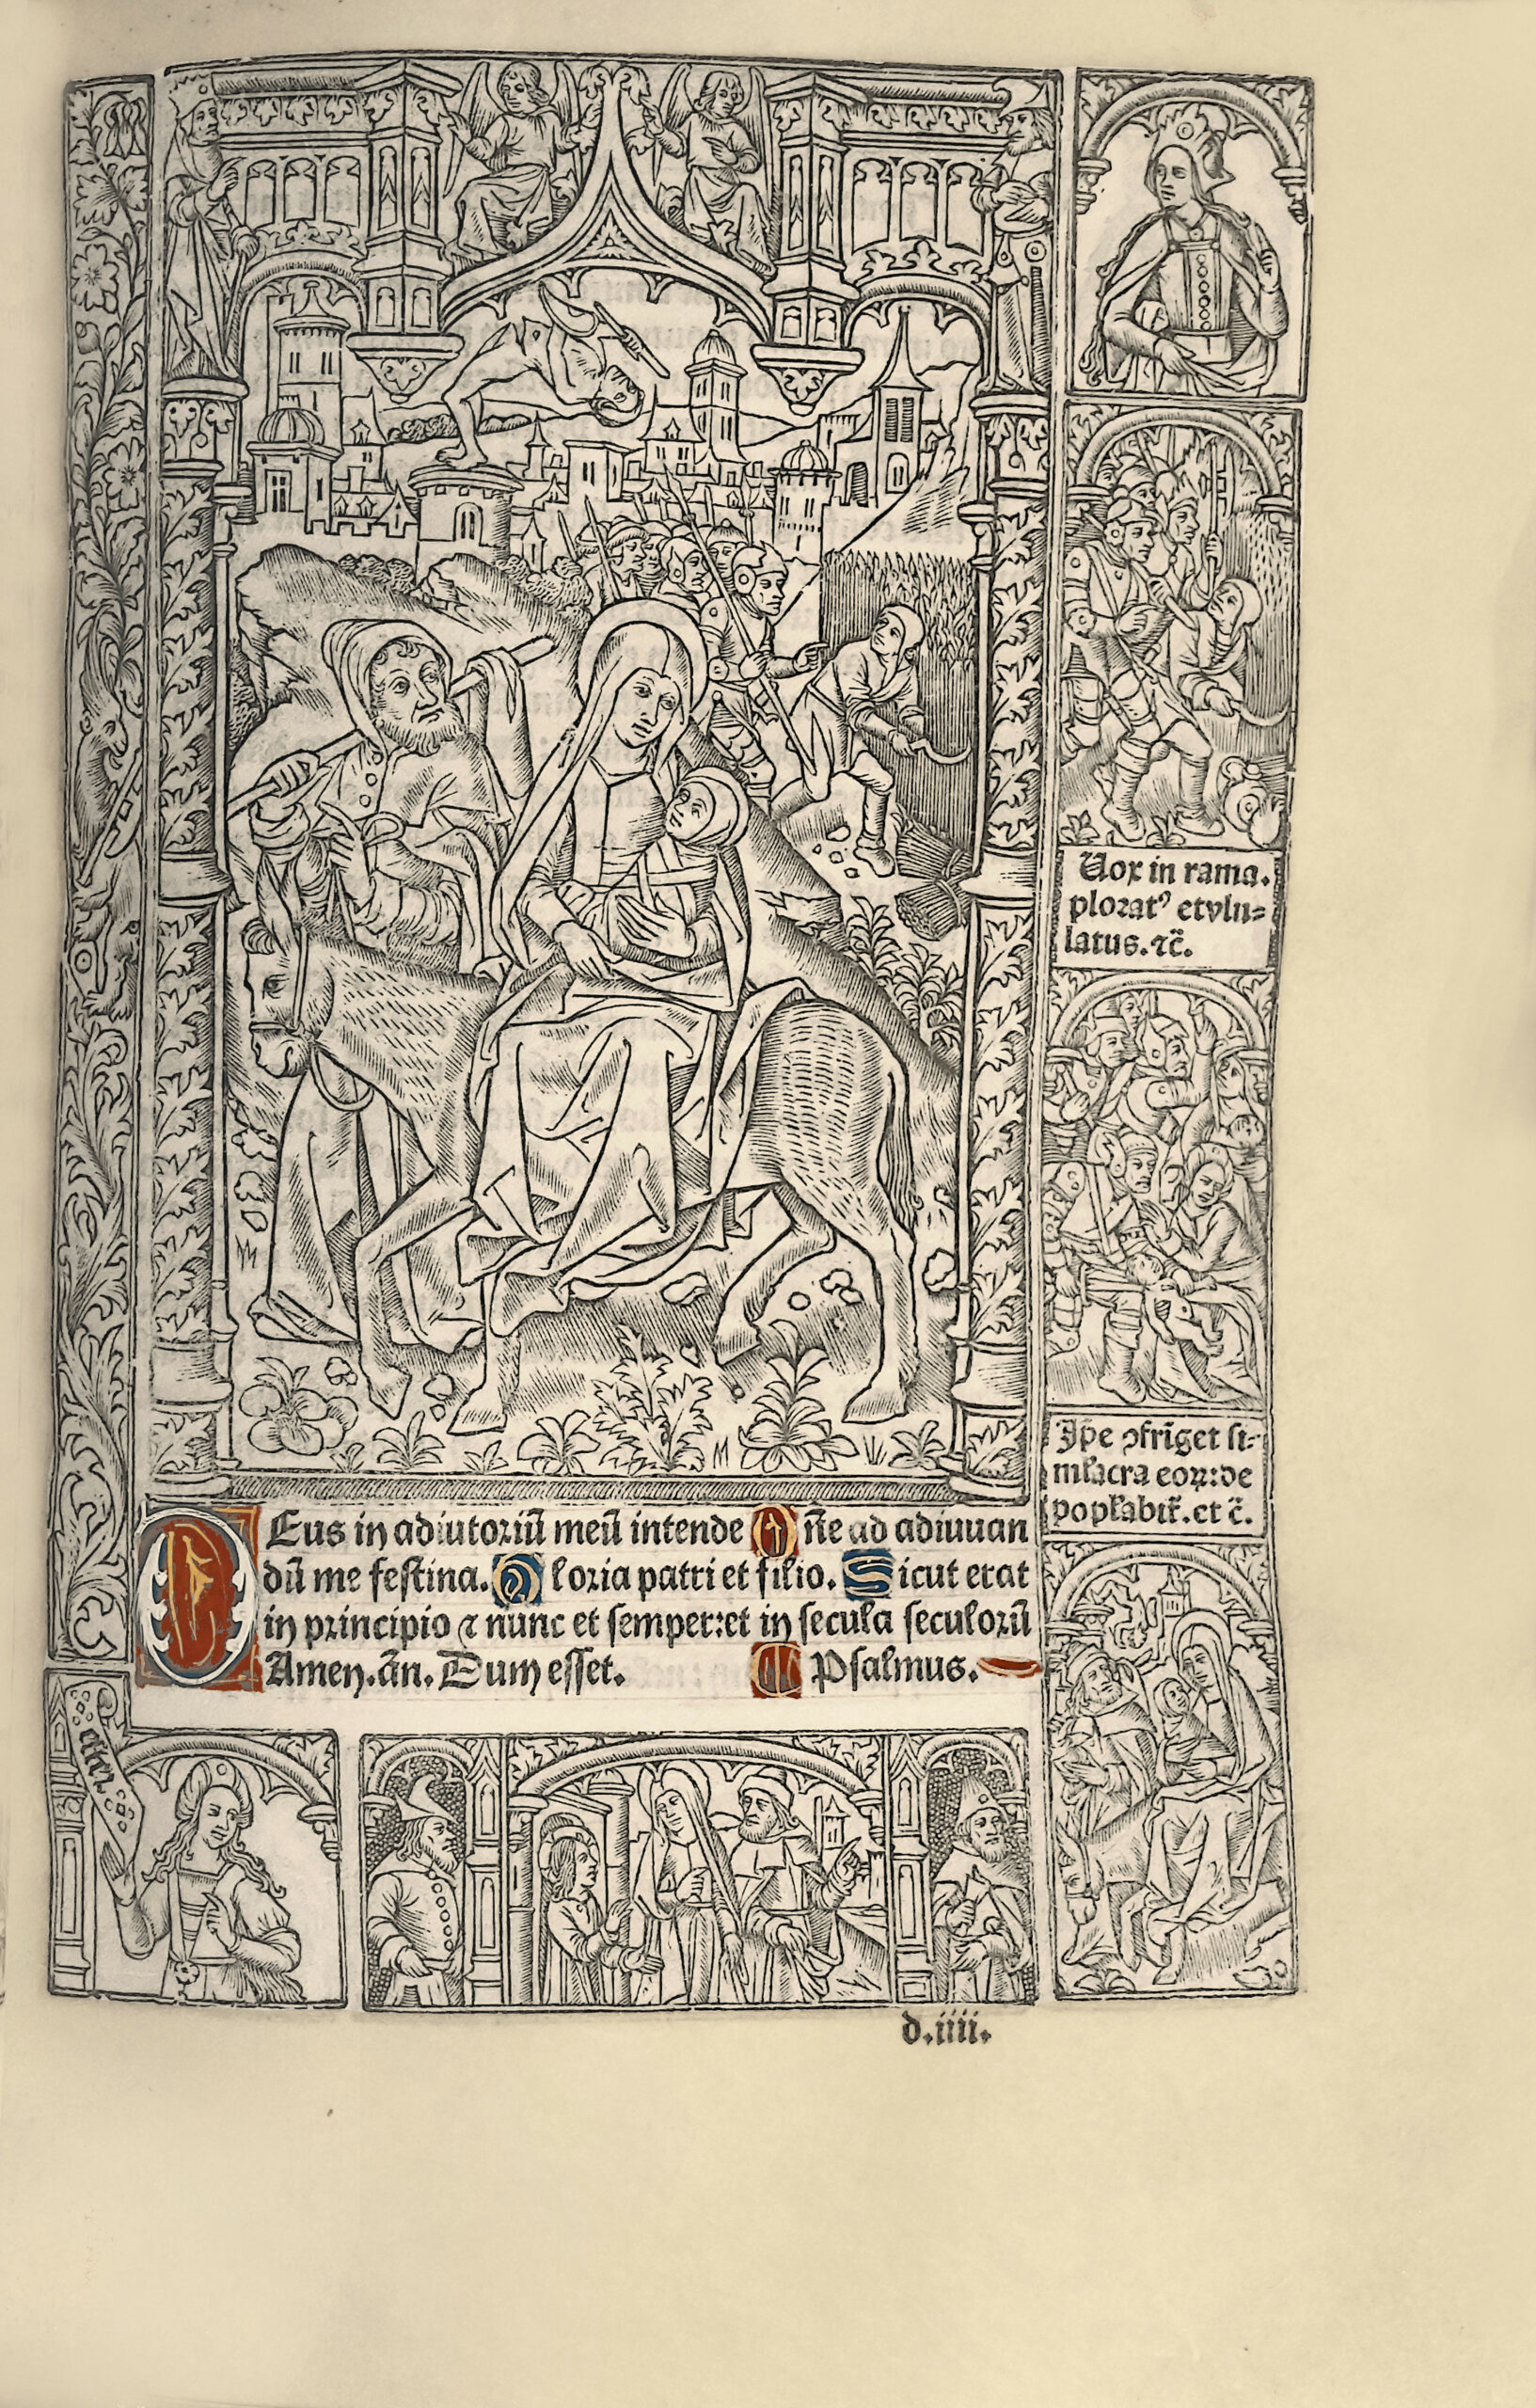 Vox in rama.
plorat⁹ et vlu=
latus. ⁊c̃.
Ip̃e ↄfrĩget si-
mlacra eoꝝ: de
popłabit̃. et c̃.
Deus in adiutoriũ meũ intende Dñe ad adiuuan
dũ me festina. Gloria patri et filio. Sicut erat
in principio ⁊ nunc et semper: et in secula seculorũ
Amen. añ. Dum esset. Psalmus.
d.iiii.